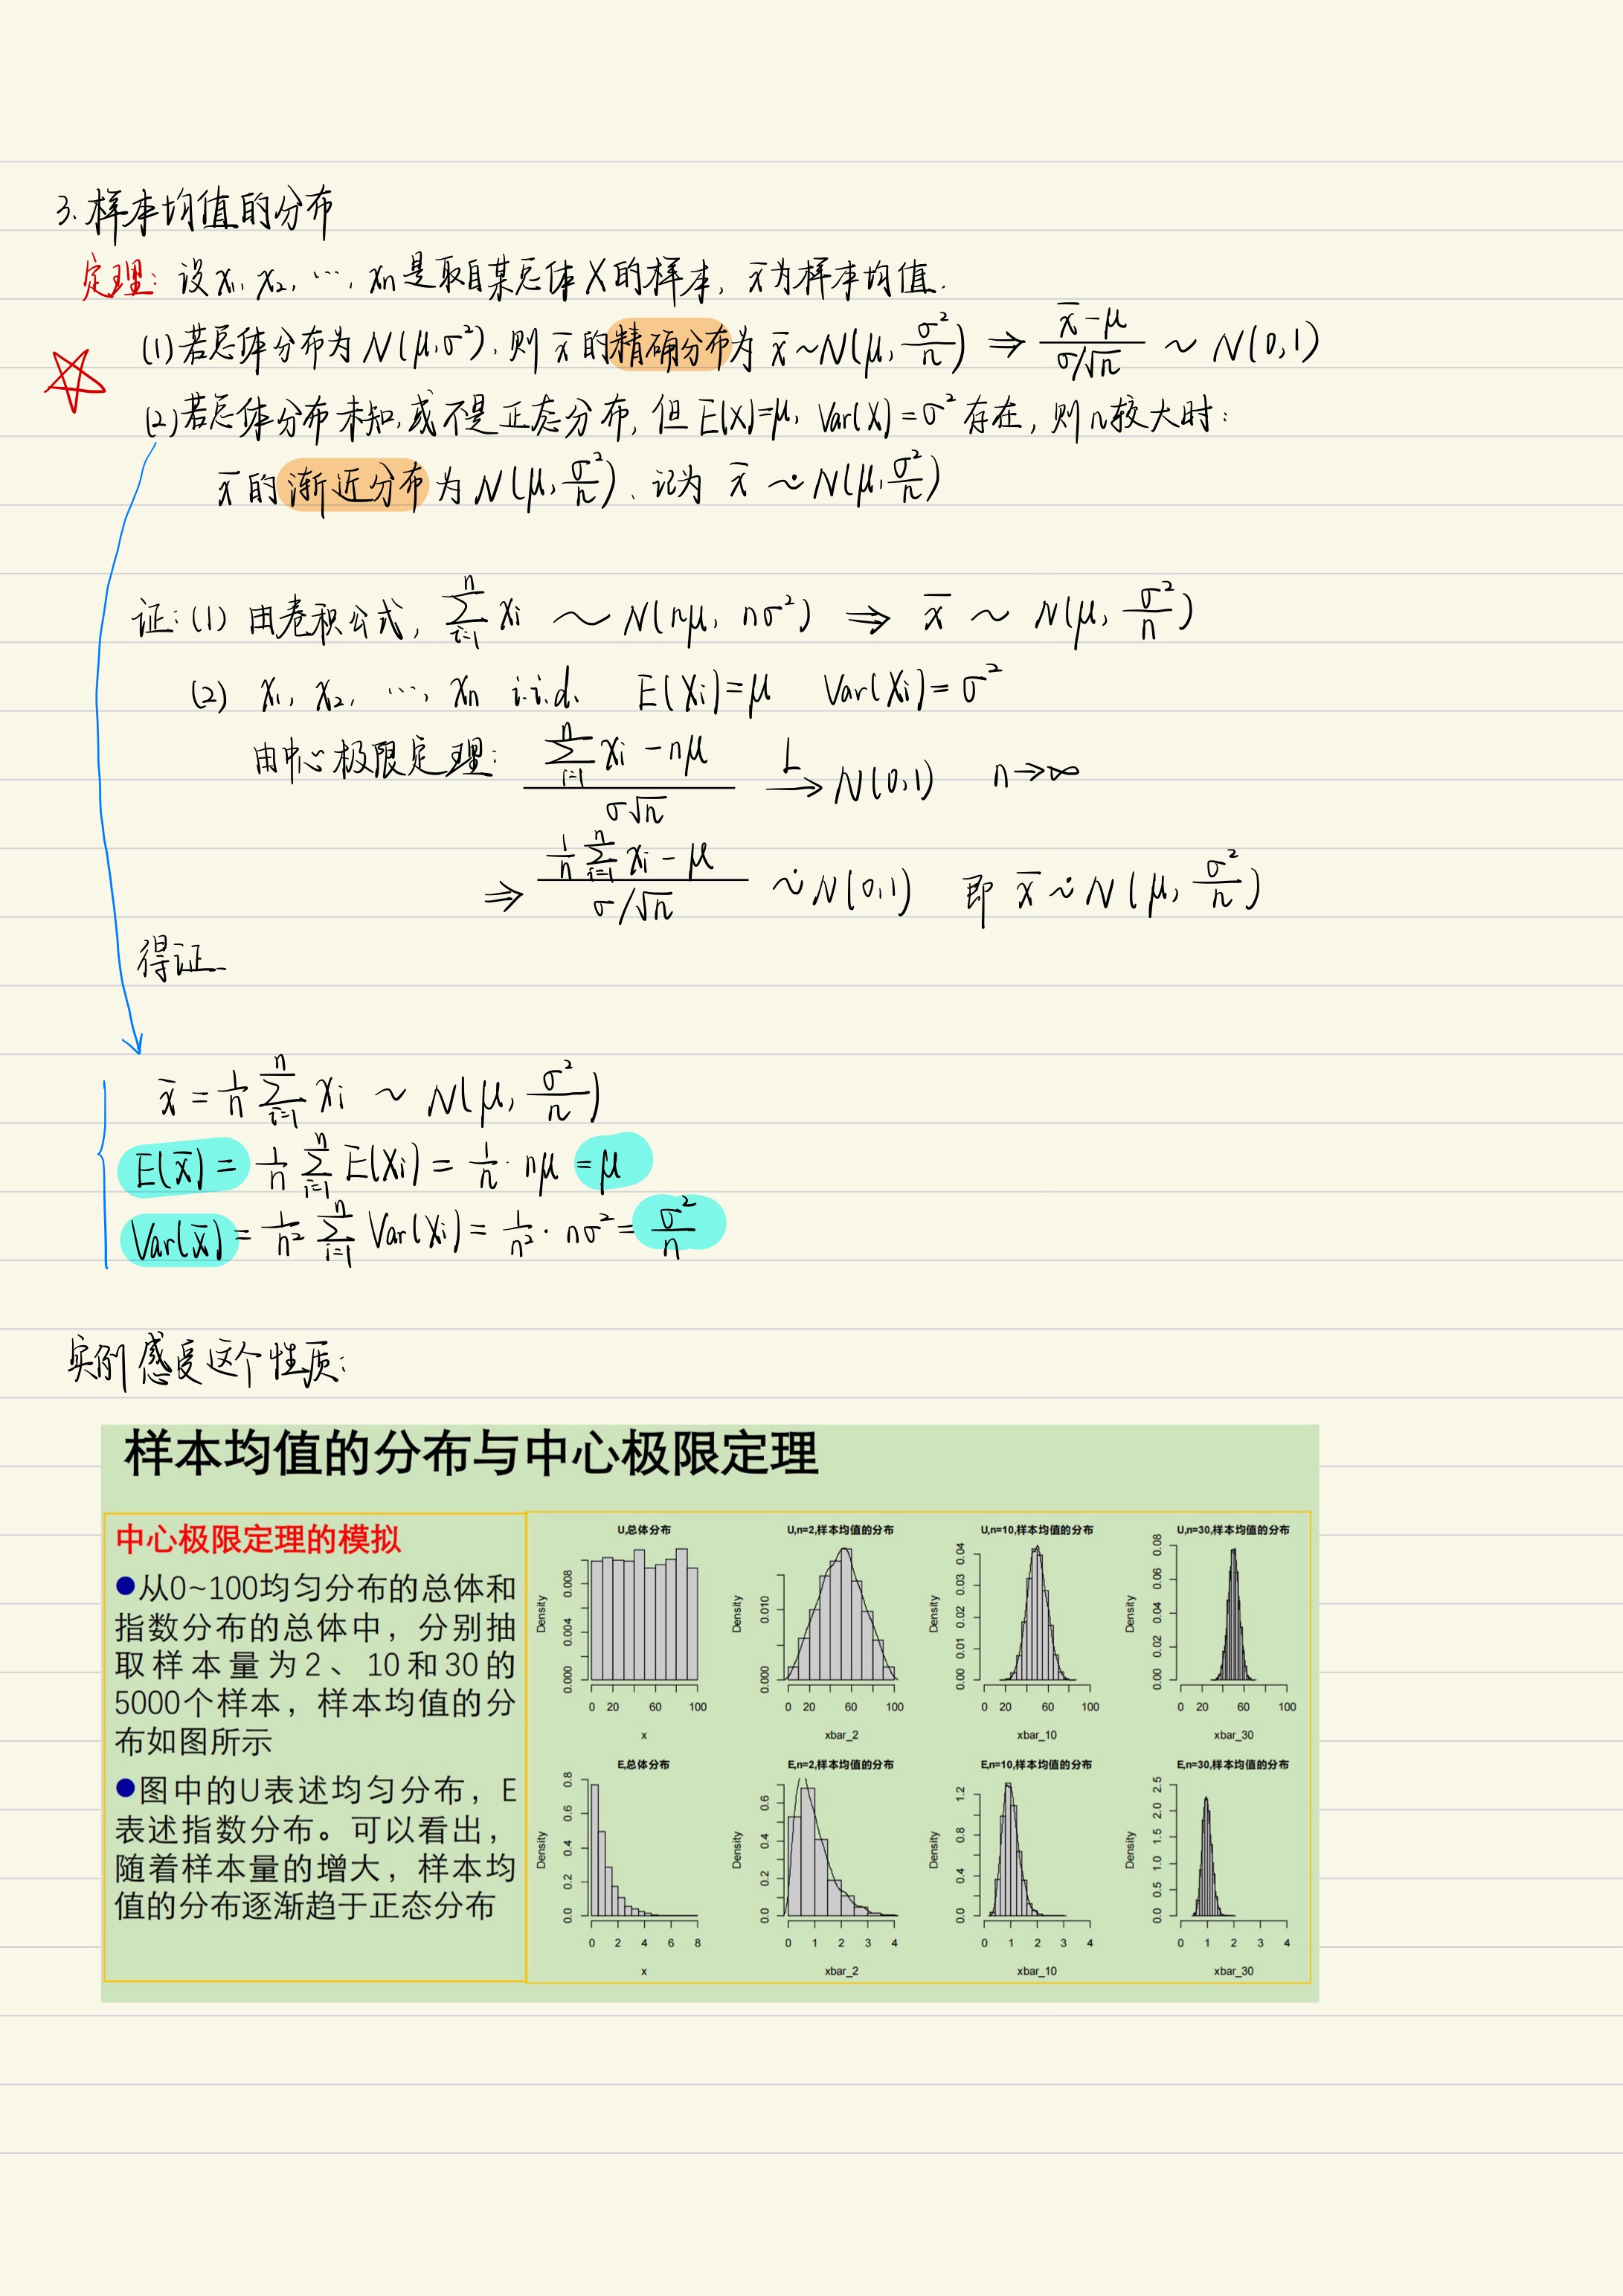 3.样本均值的分布
定理: 设x₁, x₂, ⋯, xₙ是取自某总体X的样本, x̄为样本均值.
(1)若总体分布为N(μ,σ²), 则 x̄ 的精确分布为 x̄~N(μ, σ²/n) ⇒ (x̄-μ)/(σ/√n) ~ N(0,1)
(2)若总体分布未知,或不是正态分布, 但E(X)=μ, Var(X)=σ²存在, 则n较大时:
x̄的渐近分布为N(μ, σ²/n), 记为 x̄ ∼̇ N(μ, σ²/n)
证:(1) 由卷积公式, ∑ⁿᵢ₌₁ xᵢ ~ N(nμ, nσ²) ⇒ x̄ ~ N(μ, σ²/n)
(2) x₁, x₂, ⋯, xₙ i.i.d. E(Xᵢ)=μ Var(Xᵢ)=σ²
由中心极限定理: (∑ⁿᵢ₌₁ xᵢ - nμ)/(σ√n) →ᴸ N(0,1) n→∞
⇒ (1/n ∑ⁿᵢ₌₁ xᵢ - μ)/(σ/√n) ∼̇ N(0,1) 即 x̄ ∼̇ N(μ, σ²/n)
得证.
x̄ = 1/n ∑ⁿᵢ₌₁ xᵢ ~ N(μ, σ²/n)
E(x̄) = 1/n ∑ⁿᵢ₌₁ E(Xᵢ) = 1/n · nμ = μ
Var(x̄) = 1/n² ∑ⁿᵢ₌₁ Var(Xᵢ) = 1/n² · nσ² = σ²/n
实例感受这个性质:
样本均值的分布与中心极限定理
中心极限定理的模拟
●从0~100均匀分布的总体和
指数分布的总体中，分别抽
取样本量为2、10和30的
5000个样本，样本均值的分
布如图所示
●图中的U表述均匀分布，E
表述指数分布。可以看出，
随着样本量的增大，样本均
值的分布逐渐趋于正态分布
U,总体分布
Density
0.000 0.004 0.008
0 20 60 100
x
U,n=2,样本均值的分布
Density
0.000 0.010
0 20 60 100
xbar_2
U,n=10,样本均值的分布
Density
0.00 0.01 0.02 0.03 0.04
0 20 60 100
xbar_10
U,n=30,样本均值的分布
Density
0.00 0.02 0.04 0.06 0.08
0 20 60 100
xbar_30
E,总体分布
Density
0.0 0.2 0.4 0.6 0.8
0 2 4 6 8
x
E,n=2,样本均值的分布
Density
0.0 0.2 0.4 0.6
0 1 2 3 4
xbar_2
E,n=10,样本均值的分布
Density
0.0 0.4 0.8 1.2
0 1 2 3 4
xbar_10
E,n=30,样本均值的分布
Density
0.0 0.5 1.0 1.5 2.0 2.5
0 1 2 3 4
xbar_30